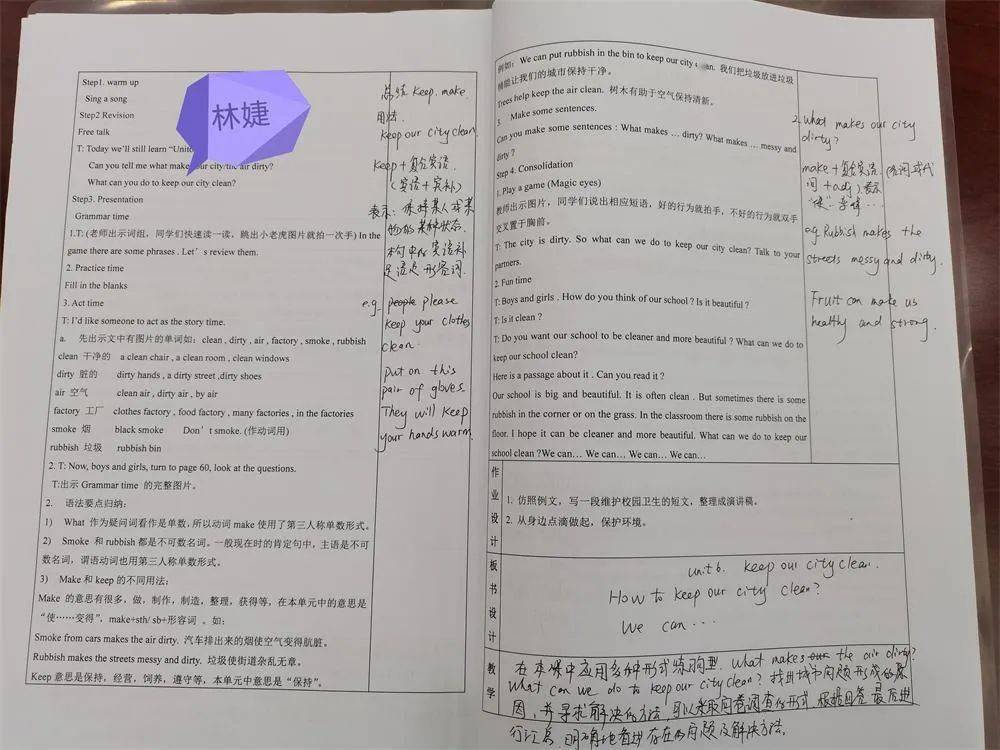 Step1. warm up
Sing a song
Step2 Revision
Free talk
T: Today we'll still learn "Unit
Can you tell me what make our city/the air dirty?
What can you do to keep our city clean?
Step3. Presentation
Grammar time
1.T: (老师出示词组,同学们快速读一读,跳出小老虎图片就拍一次手) In the
game there are some phrases . Let's review them.
2. Practice time
Fill in the blanks
3. Act time
T: I'd like someone to act as the story time.
a. 先出示文中有图片的单词如:clean , dirty , air , factory , smoke , rubbish
clean 干净的 a clean chair , a clean room , clean windows
dirty 脏的 dirty hands , a dirty street ,dirty shoes
air 空气 clean air , dirty air , by air
factory 工厂 clothes factory , food factory , many factories , in the factories
smoke 烟 black smoke Don't smoke. (作动词用)
rubbish 垃圾 rubbish bin
2. T: Now, boys and girls, turn to page 60, look at the questions.
T:出示 Grammar time 的完整图片。
2. 语法要点归纳:
1) What 作为疑问词看作是单数,所以动词 make 使用了第三人称单数形式。
2) Smoke 和 rubbish 都是不可数名词。一般现在时的肯定句中,主语是不可
数名词,谓语动词也用第三人称单数形式。
3) Make 和 keep 的不同用法:
Make 的意思有很多,做,制作,制造,整理,获得等,在本单元中的意思是
"使……变得",make+sth/ sb+形容词 。如:
Smoke from cars makes the air dirty. 汽车排出来的烟使空气变得肮脏。
Rubbish makes the streets messy and dirty. 垃圾使街道杂乱无章。
Keep 意思是保持,经营,饲养,遵守等,本单元中意思是"保持"。
林婕
总结 keep. make.
用法.
keep our city clean.
keep + 复合宾语.
(宾语+宾补)
表示:保持某人或某
物的某种状态.
本句中的宾语补
足语是形容词.
e.g. people please
keep your clothes
clean.
put on this
pair of gloves.
They will keep
your hands warm.
例如:We can put rubbish in the bin to keep our city clean. 我们把垃圾放进垃圾
桶能让我们的城市保持干净。
Trees help keep the air clean. 树木有助于空气保持清新。
3. Make some sentences.
Can you make some sentences : What makes … dirty? What makes … messy and
dirty ?
Step 4. Consolidation
1. Play a game (Magic eyes)
教师出示图片,同学们说出相应短语,好的行为就拍手,不好的行为就双手
交叉置于胸前。
T: The city is dirty. So what can we do to keep our city clean? Talk to your
partners.
2. Fun time
T: Boys and girls . How do you think of our school ? Is it beautiful ?
T: Is it clean ?
T: Do you want our school to be cleaner and more beautiful ? What can we do to
keep our school clean?
Here is a passage about it . Can you read it ?
Our school is big and beautiful. It is often clean . But sometimes there is some
rubbish in the corner or on the grass. In the classroom there is some rubbish on the
floor. I hope it can be cleaner and more beautiful. What can we do to keep our
school clean ?We can… We can… We can… We can…
2. what makes our city
dirty?
make + 复合宾语. 词或代
词 + adj) 表示
"使"
e.g. Rubbish makes the
streets messy and dirty.
Fruit can make us
healthy and strong.
作业设计
1. 仿照例文,写一段维护校园卫生的短文,整理成演讲稿。
2. 从身边点滴做起,保护环境。
板书设计
unit 6. keep our city clean.
How to keep our city clean?
We can ···
教学
在本课中应用多种形式练习句型. What makes our the air dirty?
What can we do to keep our city clean? 找出城市问题形成的原
因,并寻求解决的方法,可以采取问卷调查的形式,根据回答最后进
行汇总,明确地看到存在的问题及解决方法.